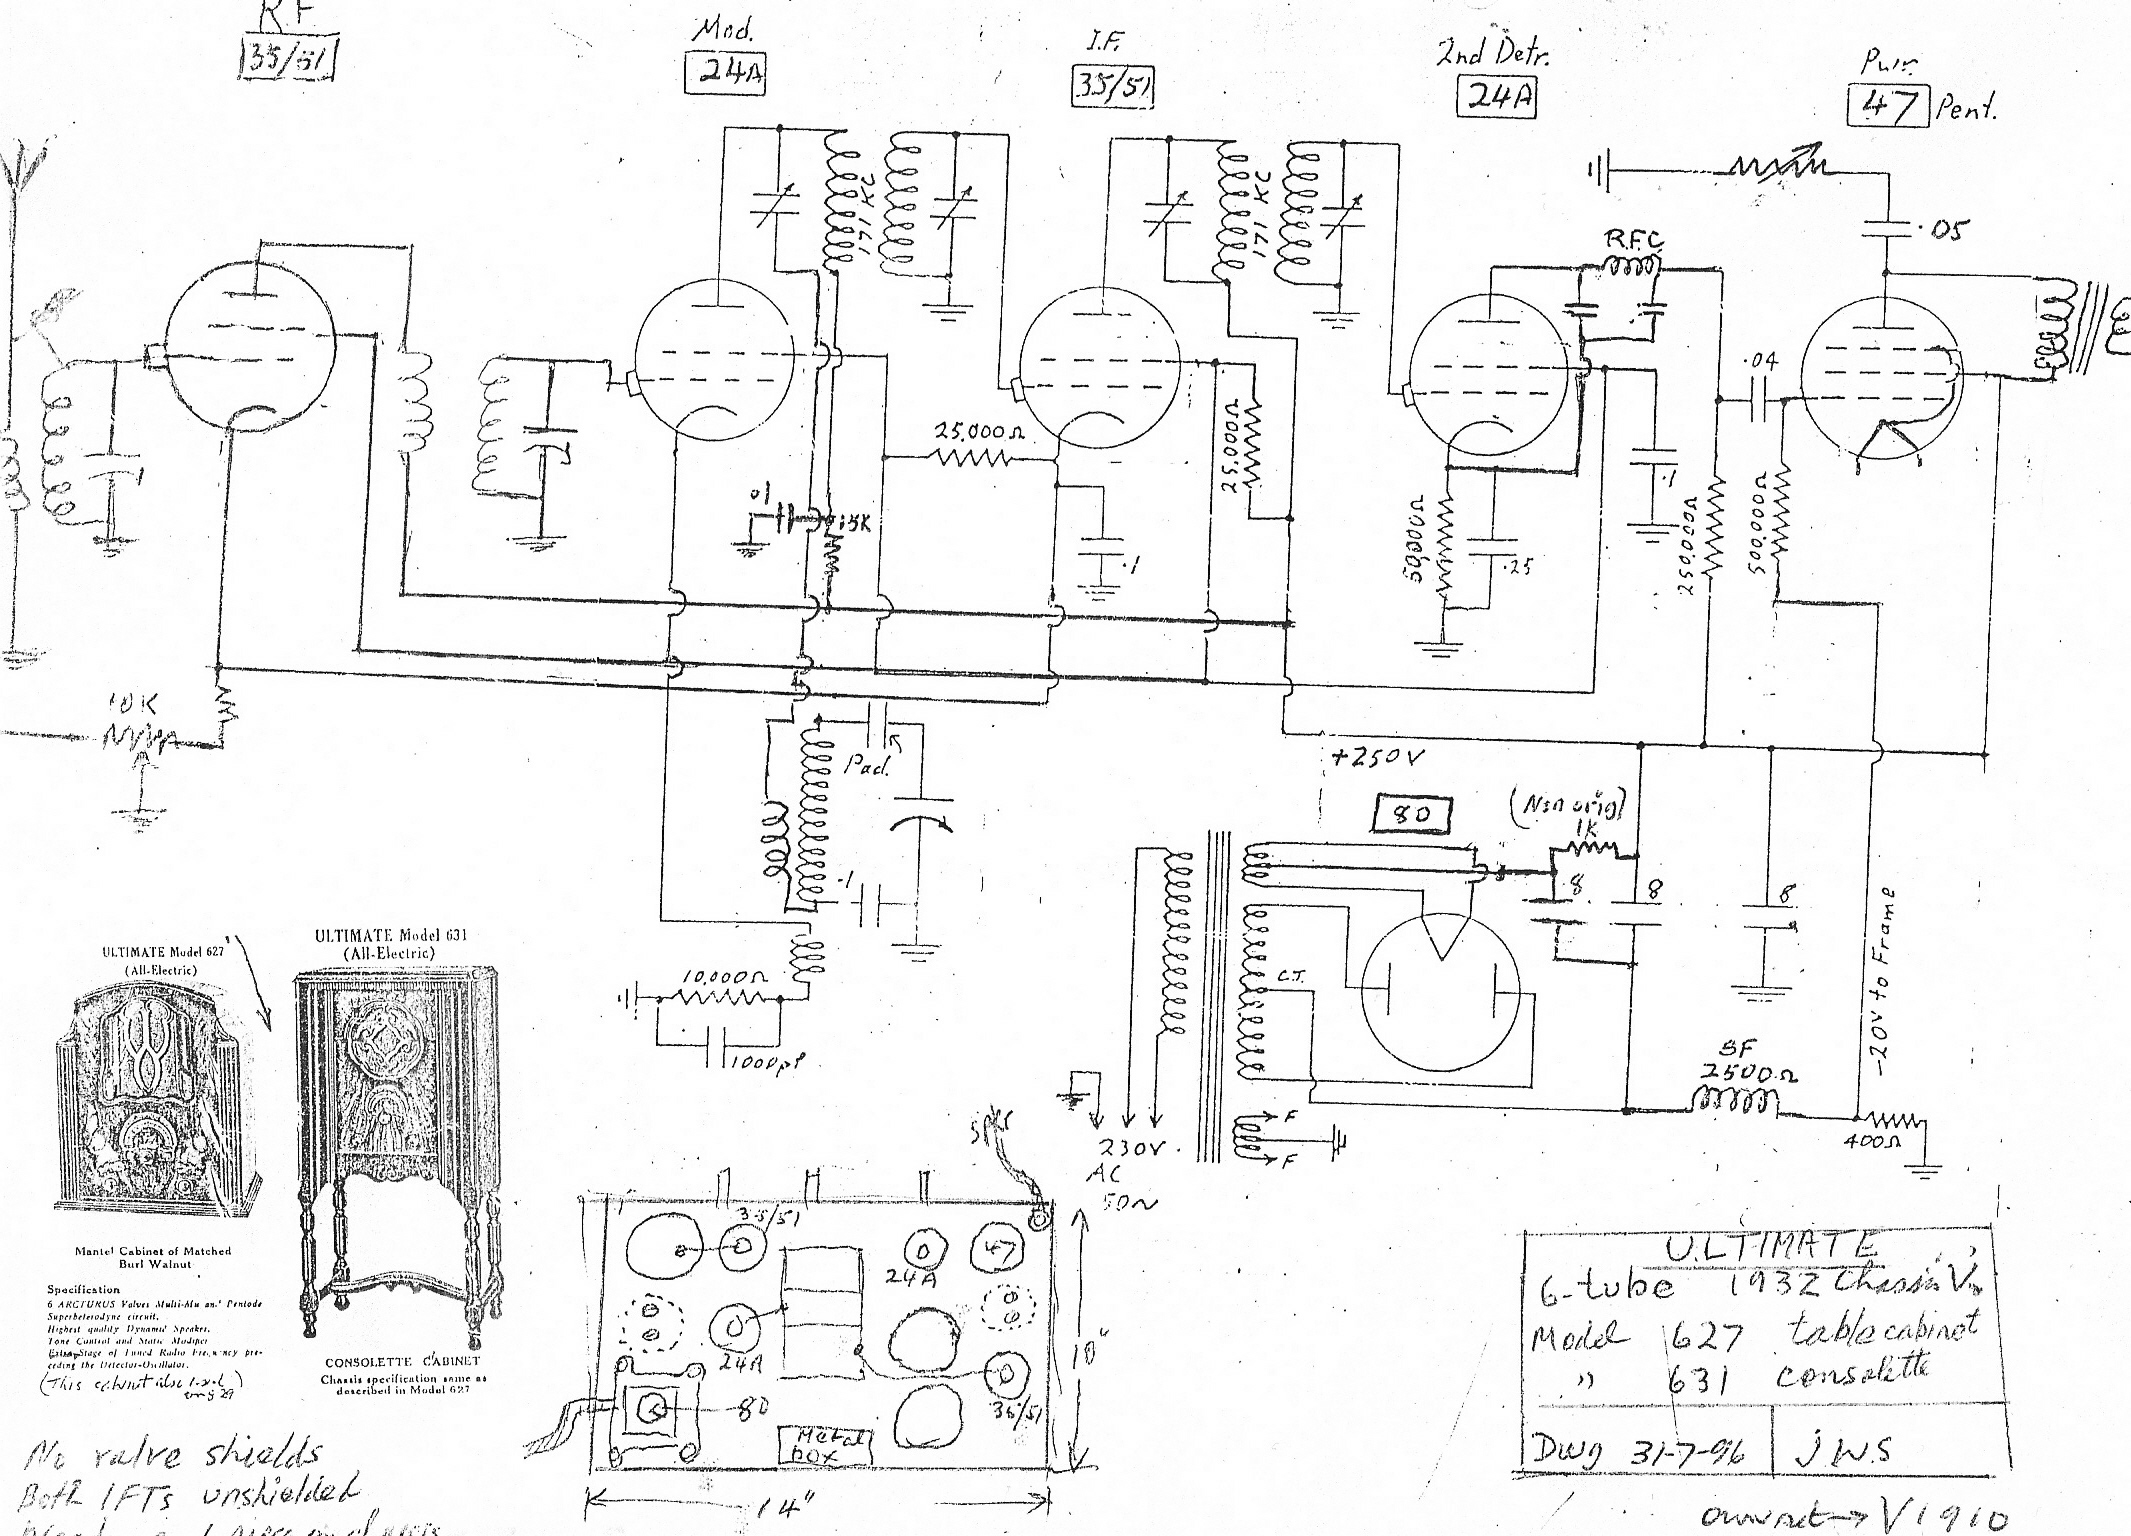 RF
35/51
Mod.
24A
I.F.
35/51
2nd Detr.
24A
Pwr.
47 Pent.
171 KC
171 KC
RFC
.05
.04
25,000Ω
25,000Ω
.1
50,000Ω
.25
.1
250,000Ω
500,000Ω
10K
Pad.
.1
10,000Ω
1000pf
+250V
80
(Non orig)
1K
8
8
8
C.T.
-20V to Frame
SF
2500Ω
400Ω
F
F
230V.
AC
50~
ULTIMATE Model 627
(All-Electric)
Mantel Cabinet of Matched
Burl Walnut
Specification
6 ARCTURUS Valves Multi-Mu and Pentode
Superheterodyne circuit.
Highest quality Dynamic Speaker.
Tone Control and Static Modifier
Extra Stage of Tuned Radio Frequency pre-
ceding the Detector-Oscillator.
(This cabinet also
ULTIMATE Model 631
(All-Electric)
CONSOLETTE CABINET
Chassis specification same as
described in Model 627
No valve shields
Both IFTs unshielded
SPKR
35/51
24A
47
24A
80
35/51
Metal
Box
10"
14"
ULTIMATE
6-tube 1932 Chassis
Model 627 table cabinet
" 631 consolette
Dwg 31-7-96 JWS
V1910